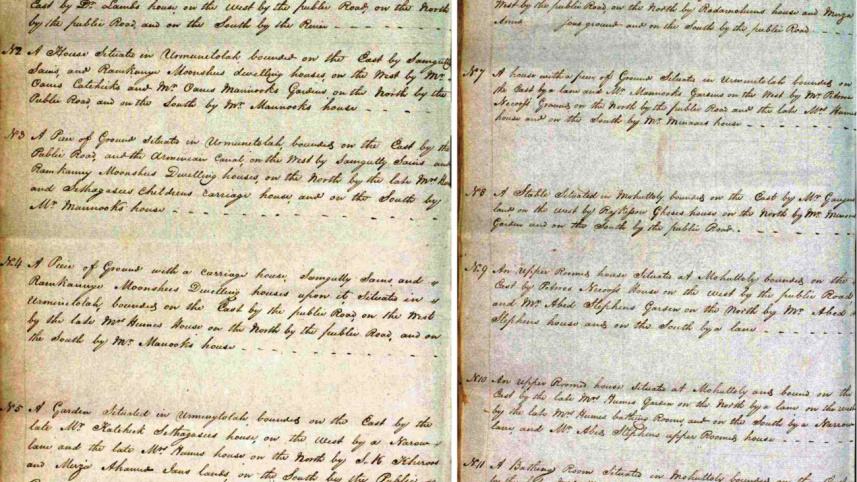 East by Dr. Lambs house, on the West by the public Road, on the North
by the public Road, and on the South by the River
No. 2 A House Situate in Urmunetolah bounded on the East by Samgutty
Sains, and Ramkanye Moonshus dwelling houses, on the West by Mr.
Caus Catchicks and Mr. Caus Mannooks Gardens, on the North by the
Public Road, and on the South by Mr. Mannooks house
No. 3 A Piece of Ground Situate in Urmunetolah, bounded on the East by the
Public Road, and the Armenian Canal, on the West by Samgutty Sains and
Ramkanny Moonshus Dwelling houses, on the North by the late Mrs
and Sethagasies Childrens carriage house, and on the South by
Mr. Mannooks house
No. 4 A Piece of Ground with a carriage house, Samgutty Sains and
Ramkannye Moonshees Dwelling houses upon it Situate in
Urminetolah, bounded on the East by the public Road, on the West
by the late Mrs Humes House on the North by the public Road, and on
the South by Mr. Manooks house
No. 5 A Garden Situated in Urminytolah, bounded on the East by the
late Mr. Katchick Sethagasies house, on the West by a Narow
lane and the late Mrs Humes house on the North by S. K.
and Merza Ahamud Jans lands, on the South by the Public
West by the public Road, on the North by house and Mirza
Anna jous ground and on the South by the public Road
No. 7 A house with a piece of Ground Situate in Urminetolah bounded on
the East by a lane and Mr. Mannooks Gardens on the West by Mr.
Necoss Ground, on the North by the public Road and the late Mrs Humes
house and on the South by Mr. Minaars house
No. 8 A Stable Situated in Mohuttoly bounded on the East by Mr.
land on the West by Ghoses house, on the North by Mr.
Garden and on the South by the public Road
No. 9 An Upper Roomed house Situate at Mohuttoly bounded on the
East by Petross Necoss House on the West by the public Road
and Mr. Abed Stephens Garden on the North by Mr. Abed
Stephens house and on the South by a lane
No. 10 An upper Roomed house situate at Mohuttoly and bound on the
East by the late Mrs Humes Garden on the North by a lane on the West
by the late Mrs Humes bathing Rooms, and on the South by a Narrow
lane, and Mr. Abed Stephens upper Roomed house
No. 11 A Bathing Room Situated in Mohuttoly bounded on the